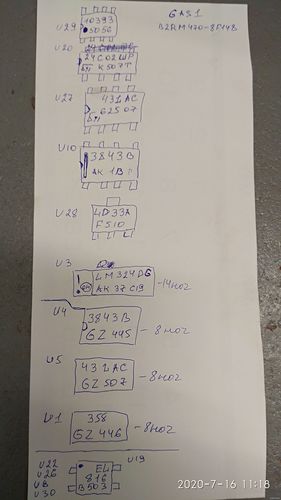 GAS1
B2RM470-8F448
U29
10393
5056
U20
24C02WP
K507T
U27
431AC
62507
U10
3843B
AK 1B
U28
4D33A
F510
U3
LM324DG
AK 37 C19
-14ног
U4
3843B
GZ 445
- 8ног
U5
431AC
GZ 507
- 8ног
U1
358
GZ 446
- 8ног
U22
U26
U8
U30
EL
816
B503
U19
2020-7-16 11:18